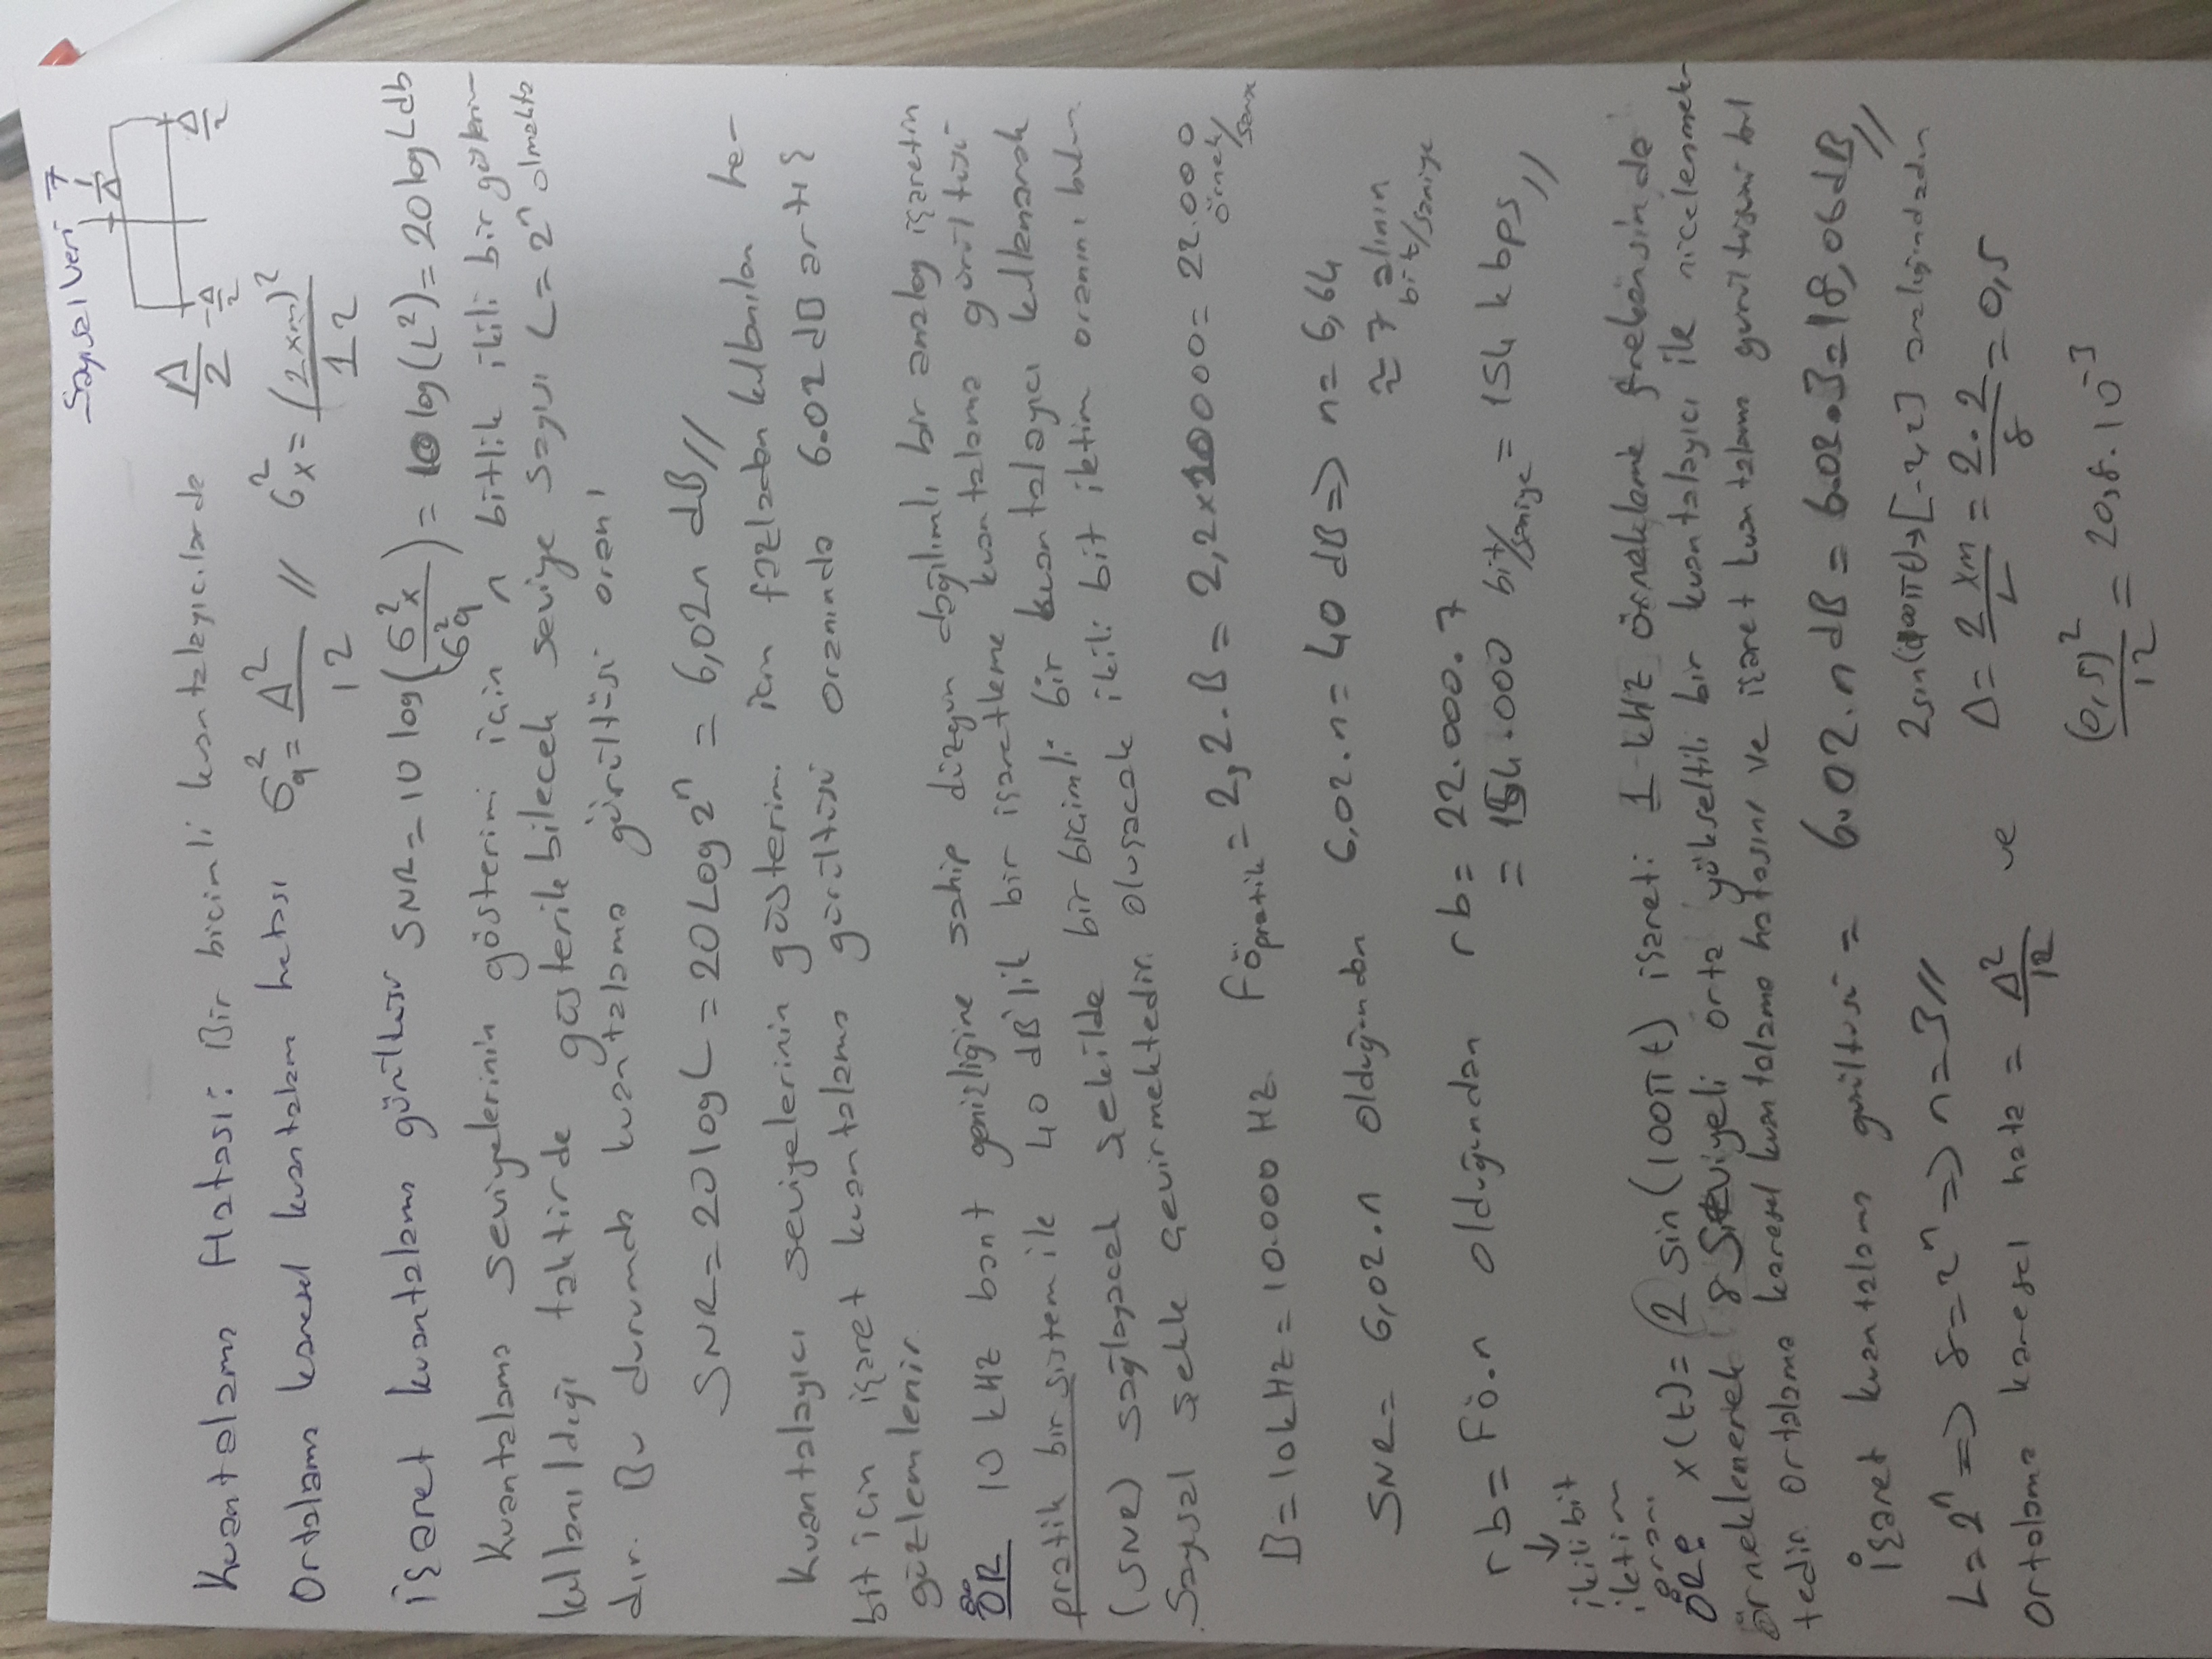 Sayısal Veri 7
1/Δ
-Δ/2 Δ/2
Kuantalama Hatası: Bir biçimli kuantalayıcılarda Δ/2
Ortalama karesel kuantalam hatası σq² = Δ²/12 // σx² = (2xm)²/12
işaret kuantalama gürültüsü SNR = 10 log(σ²x/σ²q) = 10 log(L²) = 20 log L db
Kuantalama seviyelerinin gösterimi için n bitlik ikili bir gösterim
kullanıldığı taktirde gösterilebilecek seviye sayısı L = 2ⁿ olmakta
dır. Bu durumda kuantalama gürültüsü oranı
SNR = 20 log L = 20 Log 2ⁿ = 6,02n dB //
Kuantalayıcı seviyelerinin gösterim. için fazladan kullanılan he-
bit için işaret kuantalama gürültüsü oranında 6.02 dB artış
gözlemlenir.
ÖR 10 kHZ bant genişliğine sahip düzgün dağılımlı bir analog işaretin
pratik bir sistem ile 40 dB'lik bir işaretleme kuantalama gürültüsü
(SNR) sağlayacak şekilde bir biçimli bir kuantalayıcı kullanarak
Sayısal şekle çevirmektedir. Oluşacak ikili bit iletim oranını bulun.
B = 10kHz = 10.000 HZ. Föpratik = 2,2.B = 2,2x10000 = 22.000 örnek/
SNR = 6,02.n olduğundan 6,02.n = 40 dB => n = 6,64
≈ 7 alınır
bit/saniye
rb = Fö.n olduğundan rb = 22.000.7
= 154.000 bit/saniye = 154 k bps //
↓
ikili bit
iletim
oranı
ÖR: x(t) = 2 sin(100πt) işareti 1 kHZ örnekleme frekansinda
örneklenerek 8 Seviyeli orta yükseltili bir kuantalayıcı ile nicelenmek-
tedir. Ortalama karesel kuantalama hatasını ve işaret kuantalama gürültüsünü bul
İşaret kuantalama gürültüsü = 6.02.n dB = 6.02.3 = 18,06 dB //
L = 2ⁿ => 8 = 2ⁿ => n = 3 //
2sin(100πt) → [-2,2] aralığındadır
Δ = 2 xm/L = 2.2/8 = 0,5
Ortalama karesel hata = Δ²/12 ve
(0,5)²/12 = 20,8.10⁻³